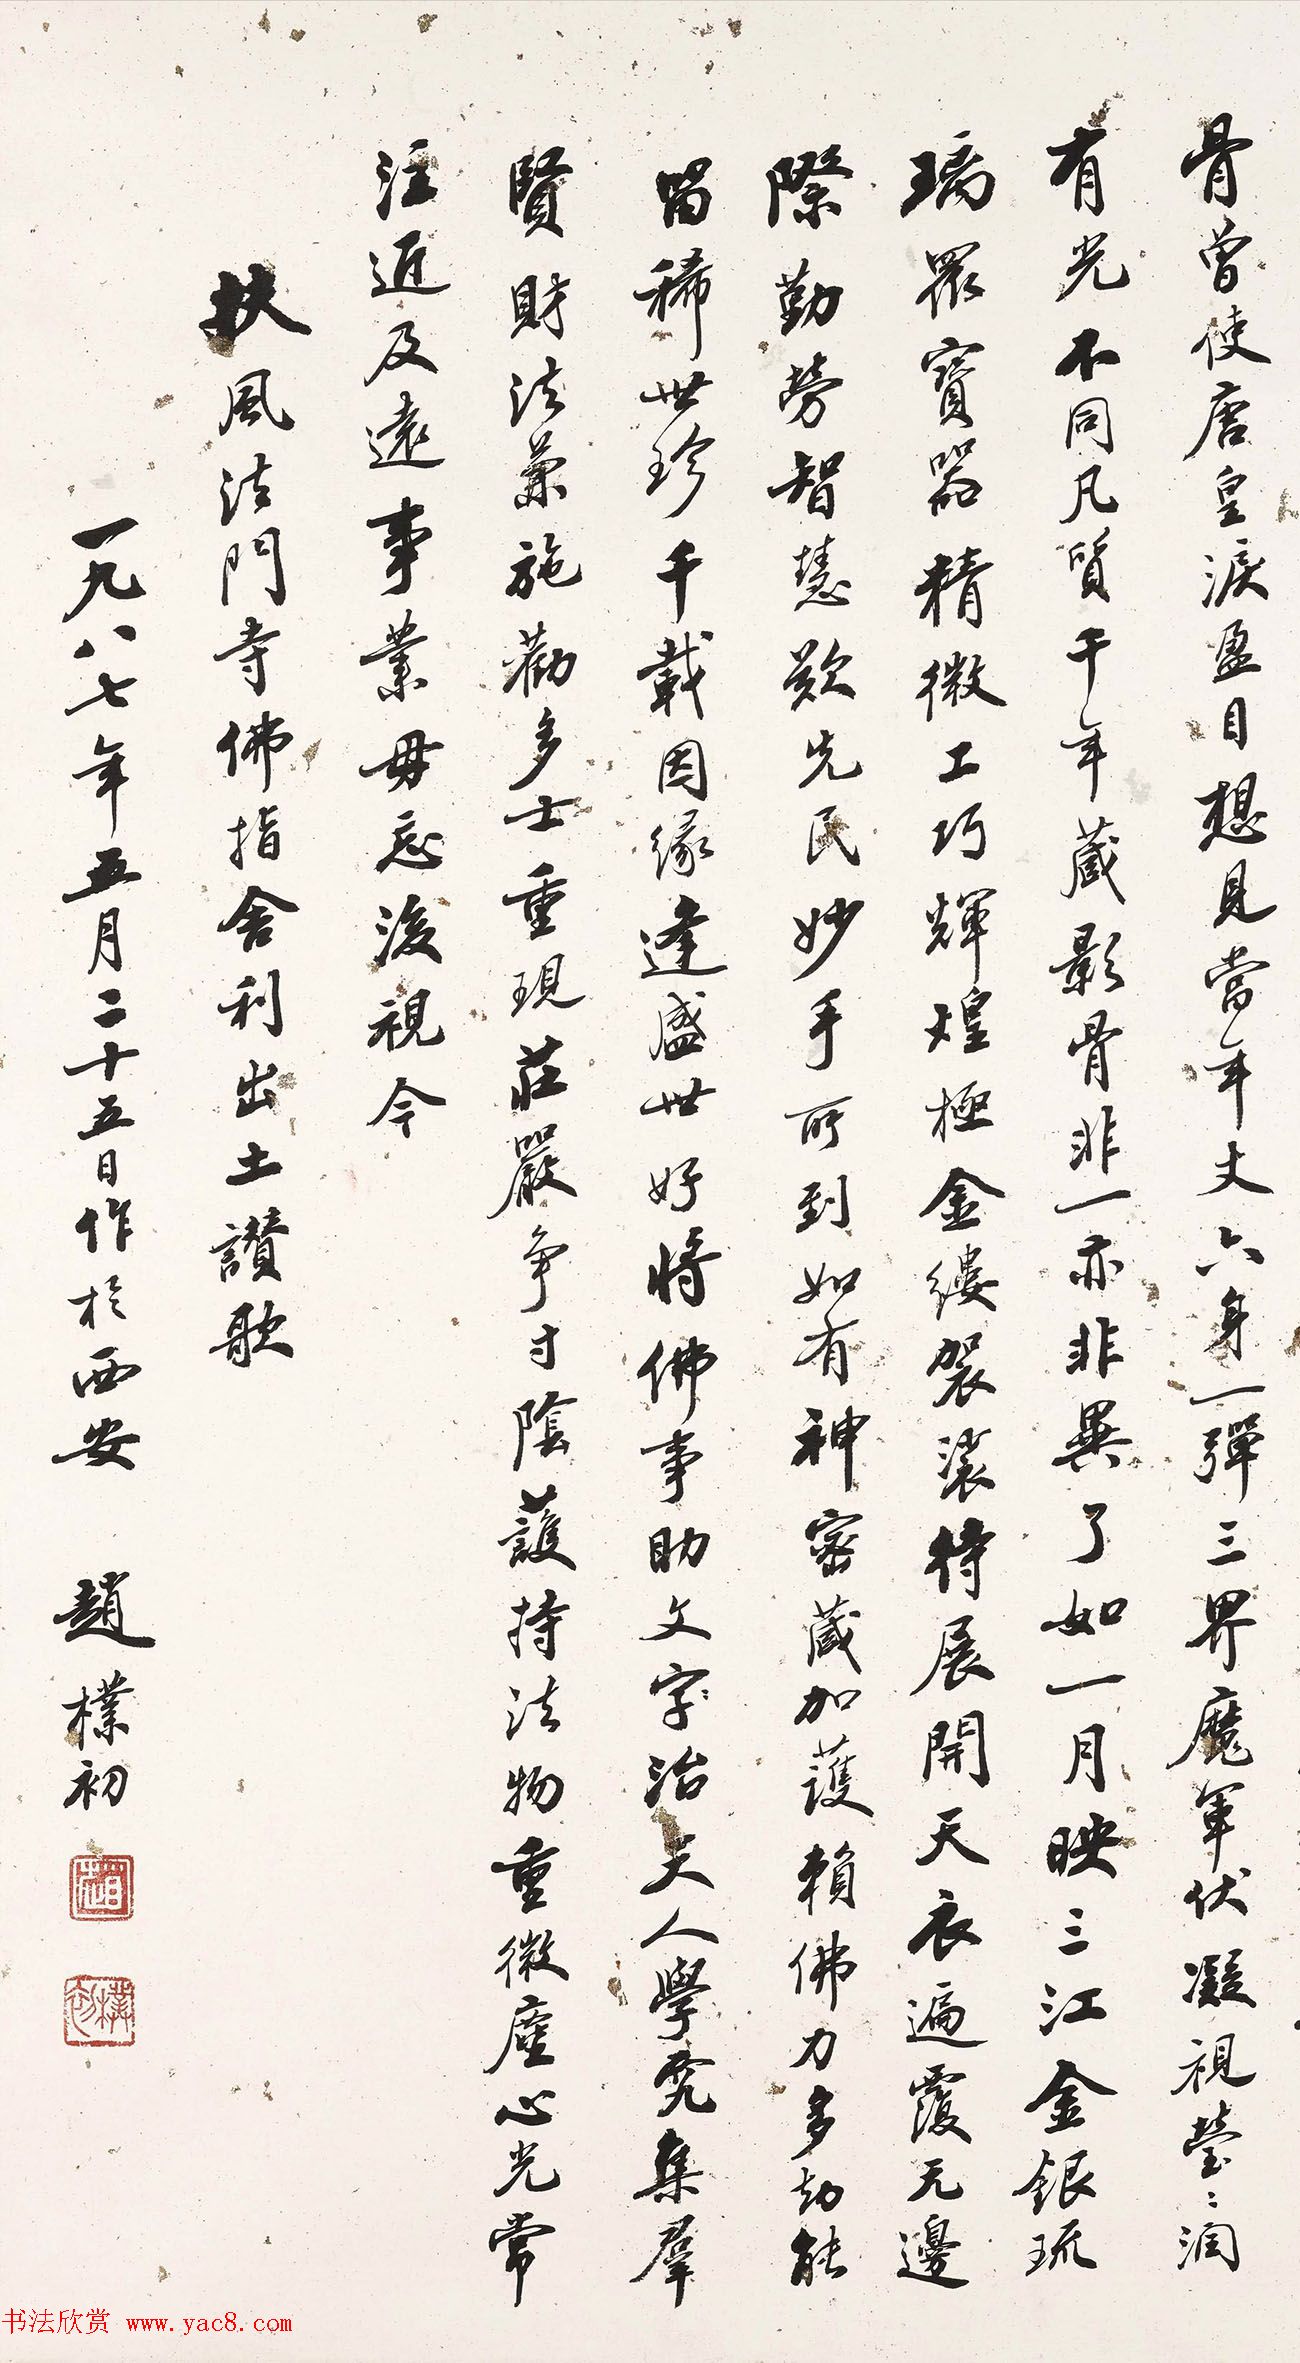 骨曾使唐皇淚盈目想見當年丈六身一彈三界魔軍伏凝視瑩〻潤
有光不同凡質千年藏影骨非一亦非異了如一月映三江金銀琉
璃眾寶器精微工巧輝煌極金縷袈裟特展開天衣遍覆无邊
際勤勞智慧歎先民妙手所到如有神密藏加護賴佛力多劫能
留稀世珍千載因緣逢盛世好將佛事助文字治天人學究集羣
賢財法兼施勸多士重現莊嚴爭寸陰護持法物重微塵心光常
注近及遠事業毋忘後視今
扶風法門寺佛指舍利出土讚歌
一九八七年五月二十五日作於西安 趙樸初
趙
樸初
书法欣赏 www.yac8.com